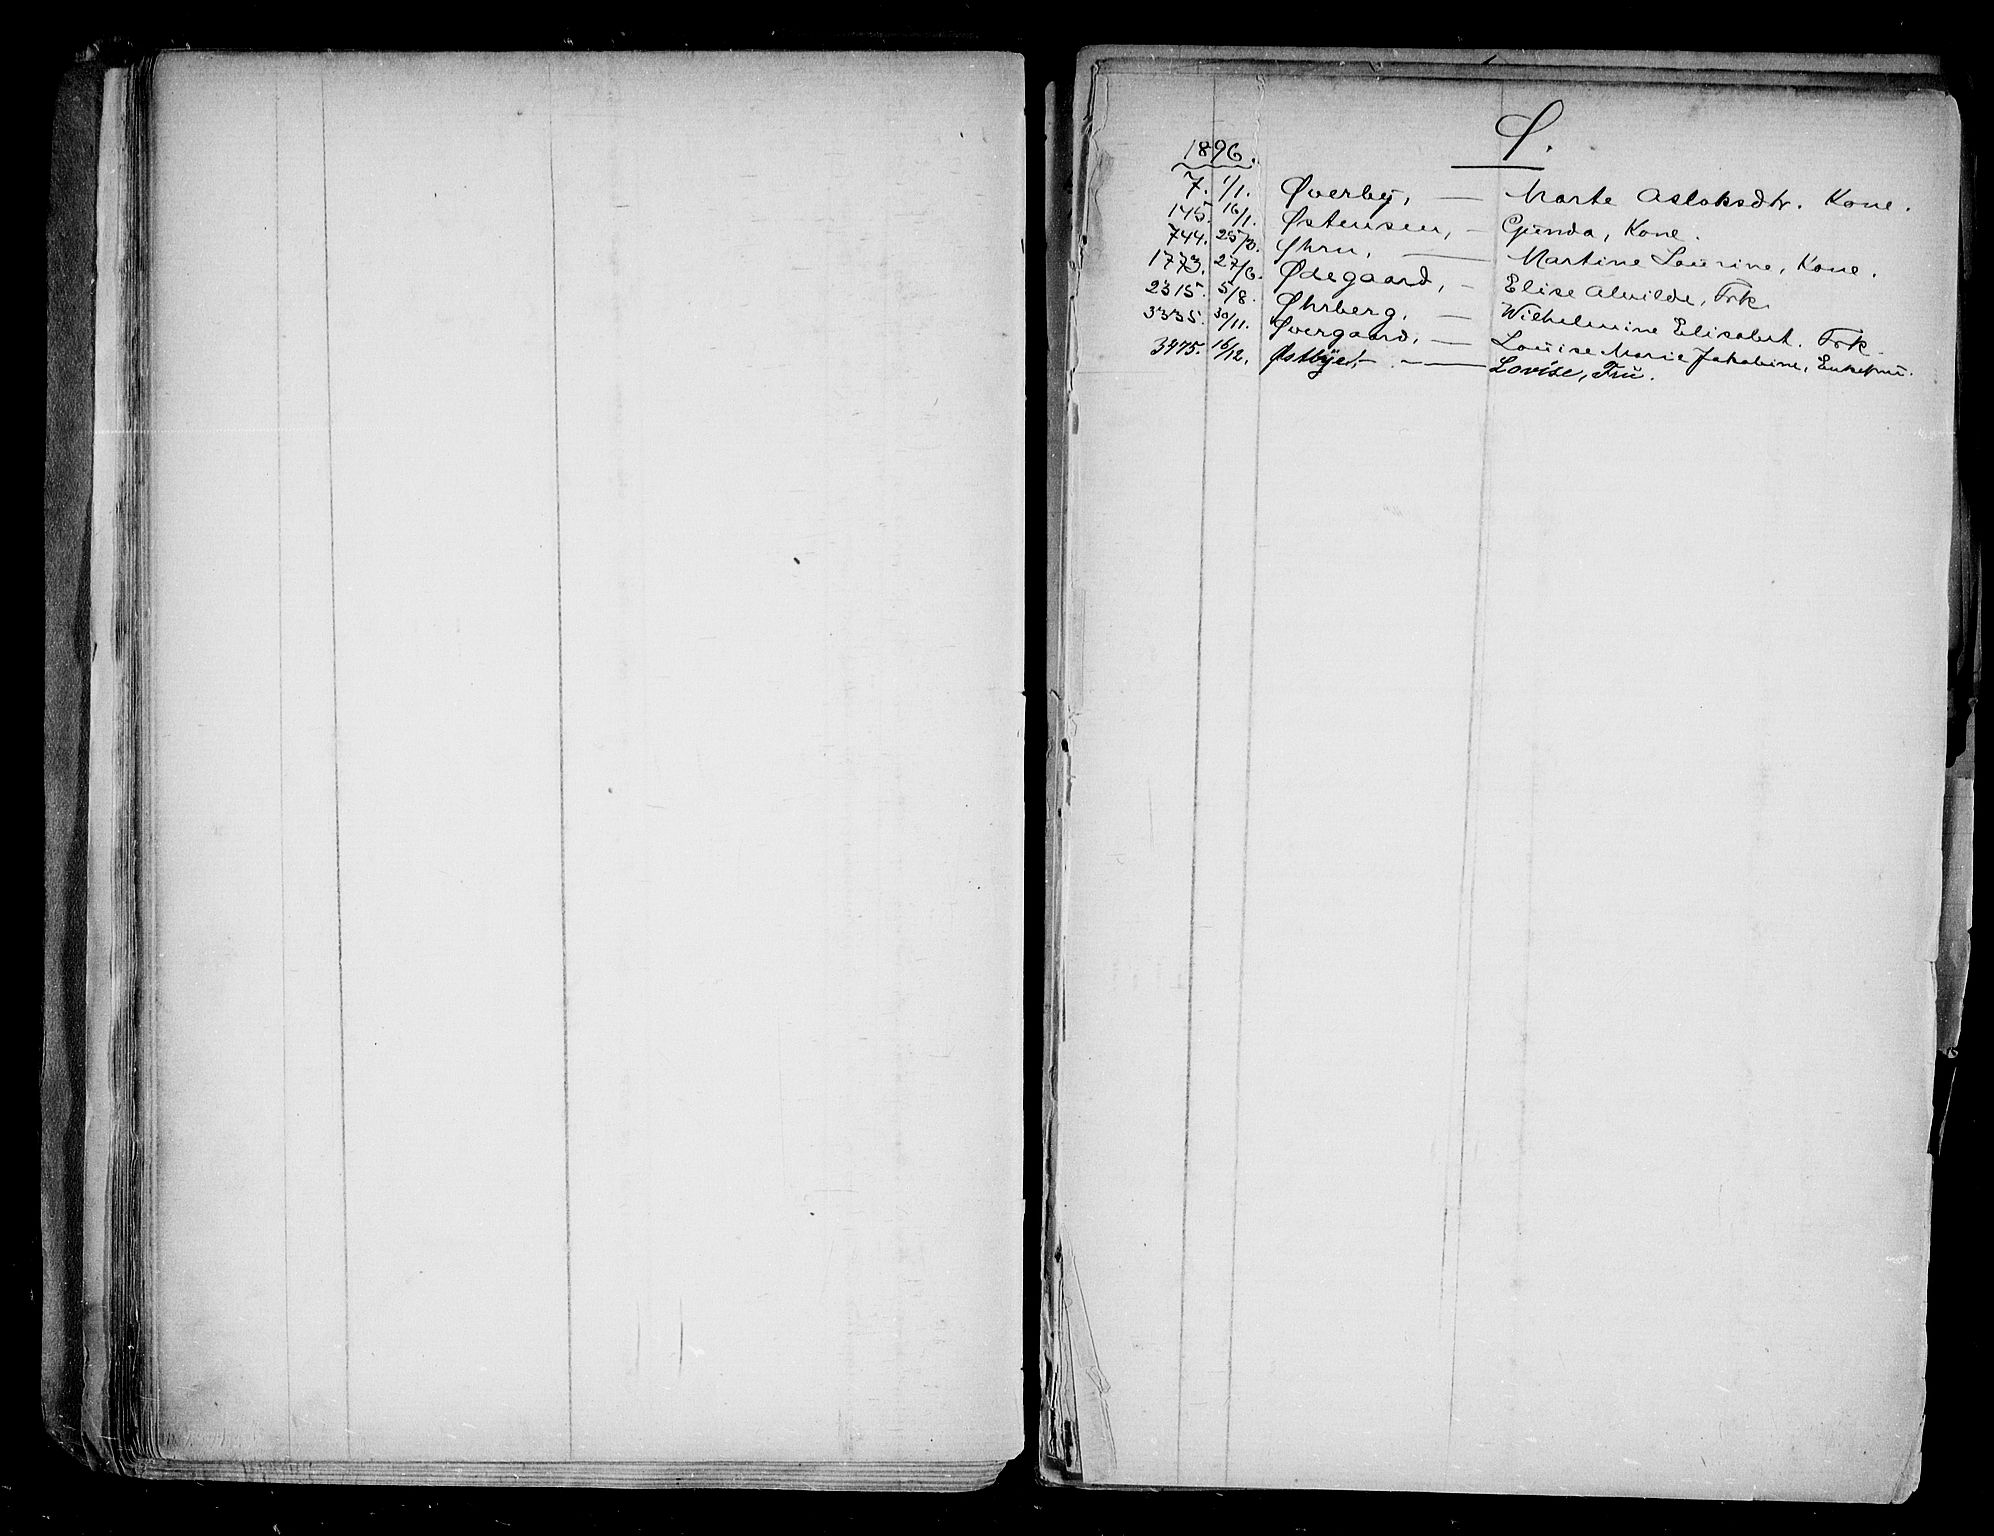 Ø.
1896.
7. 1/1. Øverby, — Marte Aslaksdtr. Kone.
145. 16/1. Østensen, — Gunda, Kone.
744. 25/3. Øhrn, — Martine Laurine, Kone.
1773. 27/6. Ødegaard, — Elise Alvilde, Frk.
2315. 5/8. Øhrberg, — Wilhelmine Elisabet. Frk.
3335. 30/11. Øvergaard, — Louise Marie Jakobine, Enkefru.
3475. 16/12. Østbye, — Lovise, Fru.